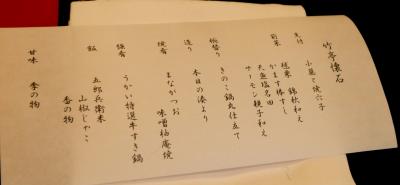 竹亭懐石
先付
小蕪と焼穴子
前菜
銀杏 錦秋和え
かます棒すし
天魚塩名田
サーモン親子和え
椀替り
きのこ鍋丸仕立て
造り
本日の湊より
焼肴
まながつお 味噌柚庵焼
強肴
うかい特選牛すき鍋
飯
五郎兵衛米
山椒じゃこ
香の物
甘味
季の物